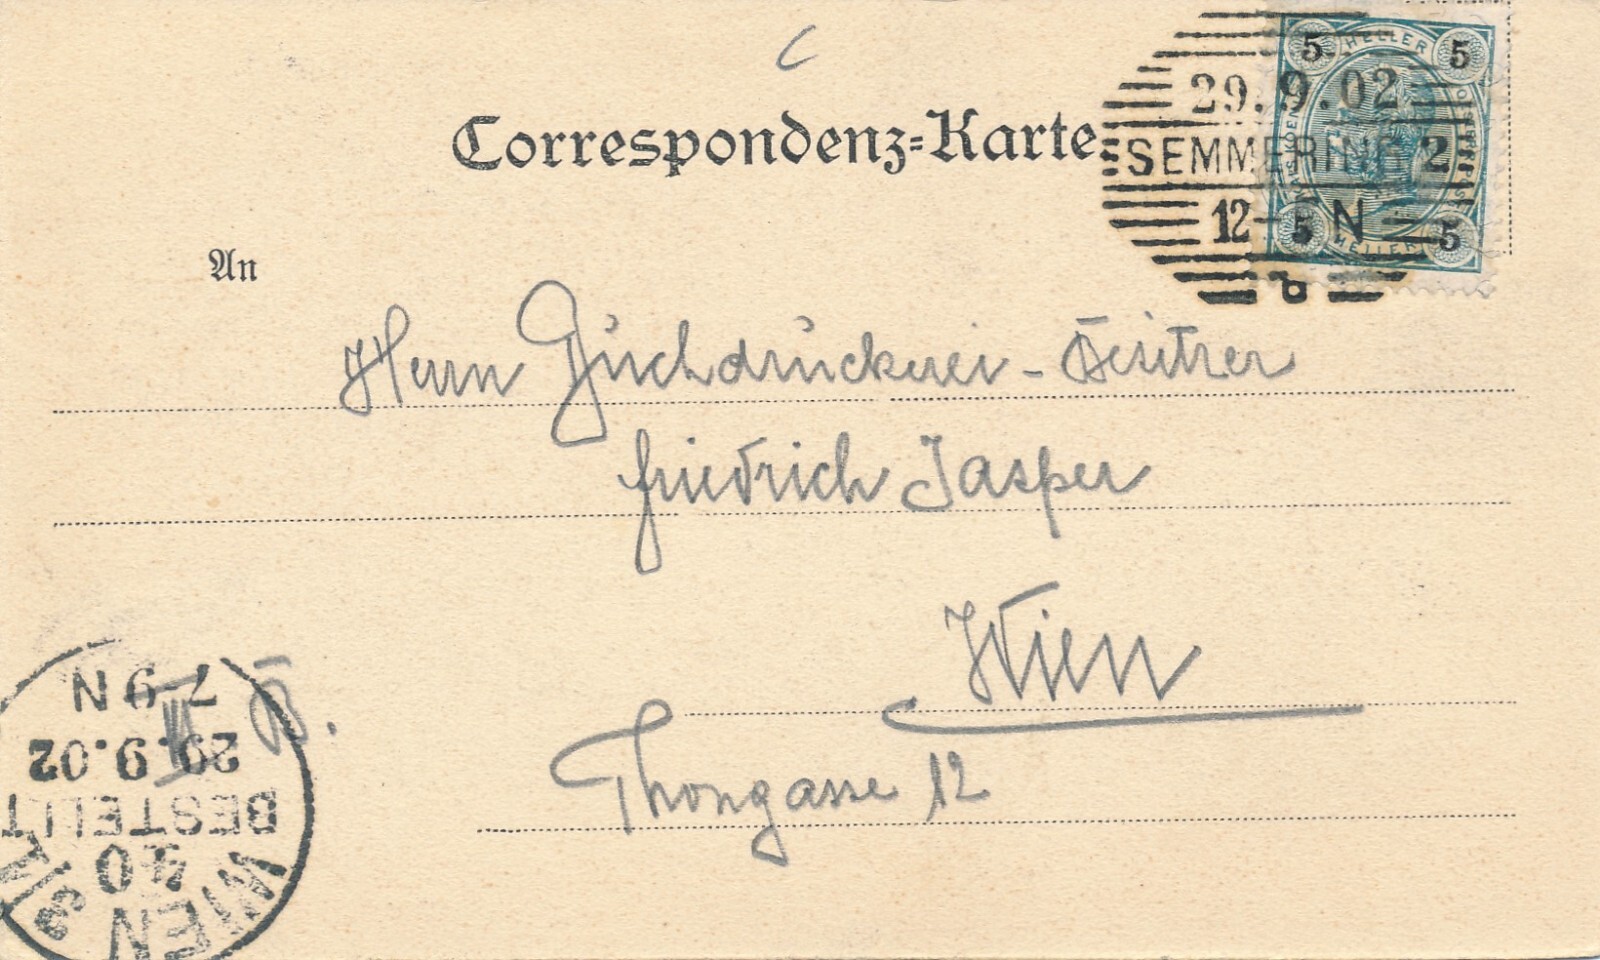 Correspondenz-Karte
5 HELLER 5
29.9.02
SEMMERING 2
12-5 N
b
5 HELLER 5
An
Herrn Buchdruckerei-Besitzer
Friedrich Jasper
Wien
Thongasse 12
7-9 N
29.9.02
BESTELLT
40
WIEN 3/1